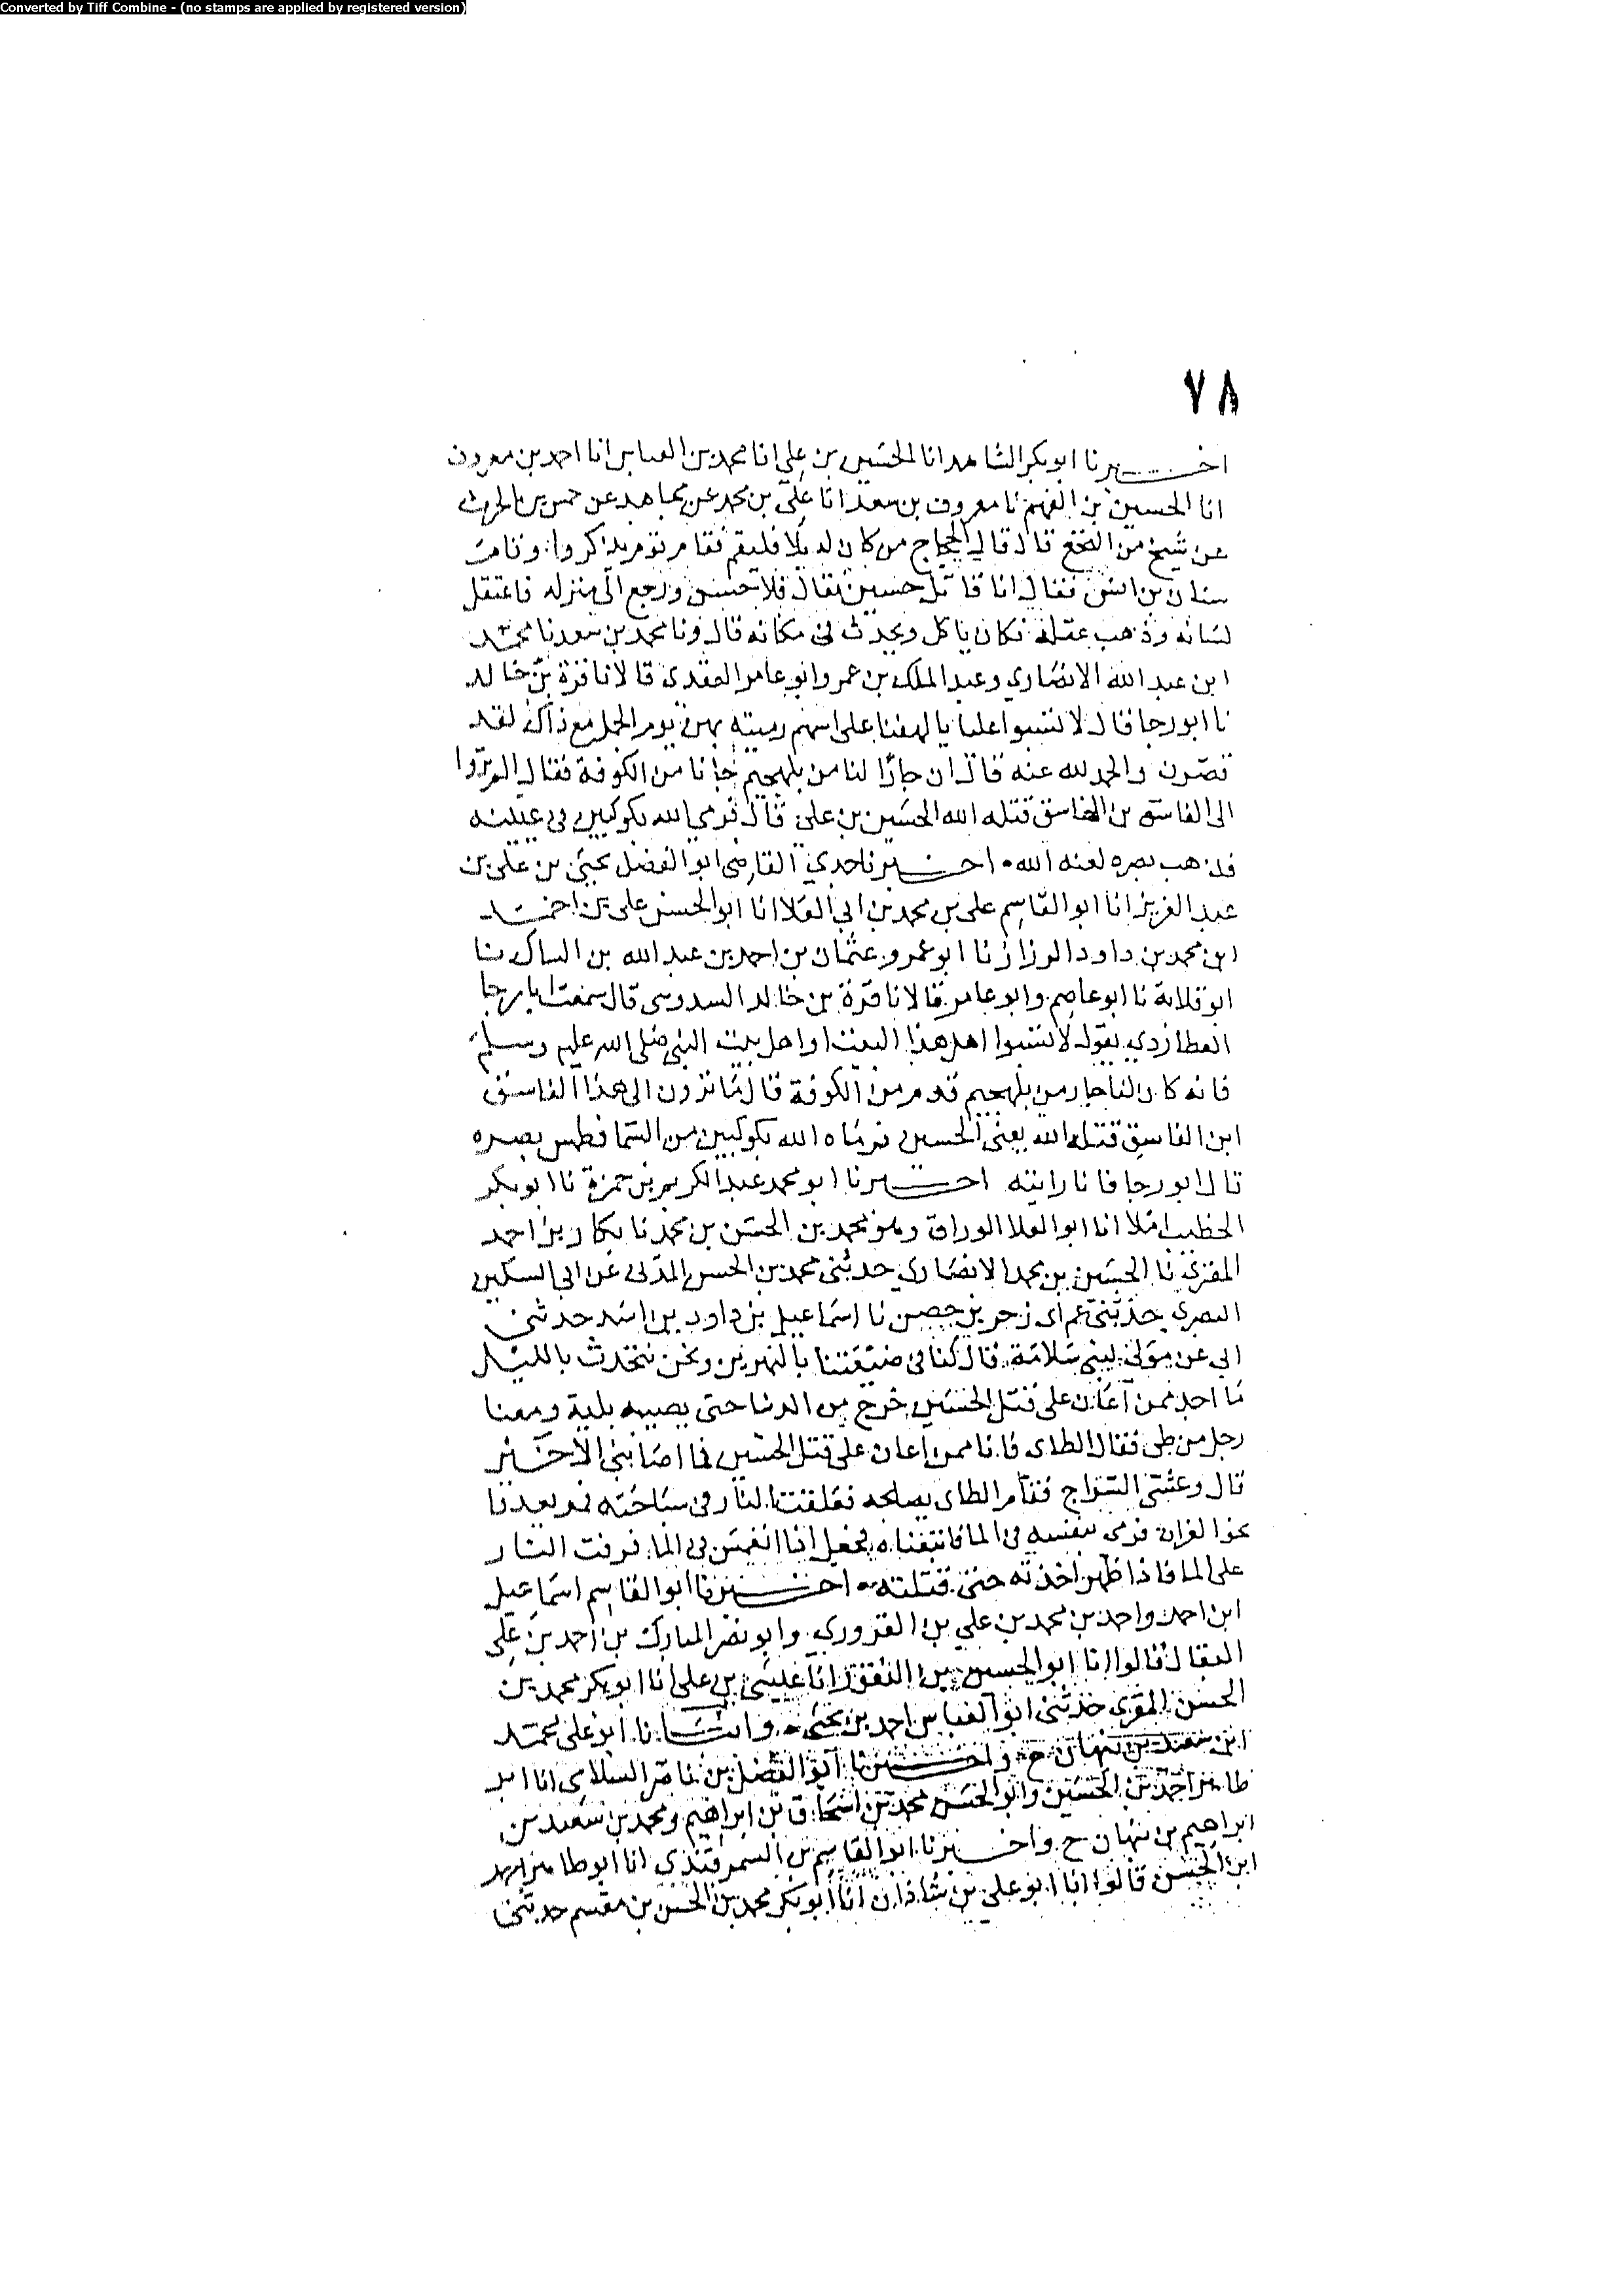 Converted by Tiff Combine - (no stamps are applied by registered version)
٧٨
اخبرنا ابو بكر الشاهد انا الحسين بن علي انا محمد بن العباس انا احمد بن معروف
انا الحسين بن الفهم نا معروف بن سعد انا علي بن محمد عن مجاهد عن حنش بن الحرث
عن شيخ من النخع قال قال الحجاج من كان له بلا فليقم فقام قوم يذكروا وقام
سنان بن انس فقال انا قاتل حسين فقال بلا حسن ورجع الى منزله فاعتقل
لسانه وذهب عقله فكان ياكل ويحدث في مكانه قال ونا محمد بن سعد نا محمد
ابن عبد الله الانصاري وعبد الملك بن عمرو ابو عامر العقدي قالا نا قرة بن خالد
نا ابو رجا قال لا تسبوا عليا يا لهفنا على اسهم رميته بهن يوم الجمل مع ذاك لقد
قصرن والحمد لله عنه قال ان جارا لنا من بلهجيم جانا من الكوفة فقال الم تروا
الى الفاسق بن الفاسق قتله الله الحسين بن علي قال فرمي الله بكوكبين في عينيه
فذهب بصره لعنه الله اخبرنا جدي القاضي ابو الفضل يحيى بن علي بن
عبد العزيز انا ابو القاسم علي بن محمد بن ابي العلا انا ابو الحسن علي بن احمد
ابن محمد بن داود الرزاز نا ابو عمرو عثمان بن احمد بن عبد الله بن السماك نا
ابو قلابة نا ابو عاصم وابو عامر قالا نا قرة بن خالد السدوسي قال سمعت ابا رجا
العطاردي يقول لا تسبوا اهل هذا البيت او اهل بيت النبي صلى الله عليه وسلم
فانه كان لنا جار من بلهجيم قدم من الكوفة قال ما ترون الى هذا الفاسق
ابن الفاسق قتله الله يعني الحسين فرماه الله بكوكبين من السما فطمس بصره
قال ابو رجا فانا رايته اخبرنا ابو محمد عبد الكريم بن حمزة نا ابو بكر
الخطيب املا انا ابو العلا الوراق وهو محمد بن الحسن بن محمد نا بكار بن احمد
المقرئ نا الحسين بن محمد الانصاري حدثني محمد بن الحسن المدني عن ابي السكين
البصري حدثني عم ابي زحر بن حصن نا اسماعيل بن داود بن اسد حدثني
ابي عن مولى لبني سلامة قال كنا في ضيعتنا بالنهرين ونحن نتحدث بالليل
ما احد ممن اعان على قتل الحسين خرج من الدنيا حتى يصيبه بلية ومعنا
رجل من طي فقال الطاي فانا ممن اعان على قتل الحسين فما اصابني الا خير
قال وعشي السراج فقام الطاي يصلحه فعلقت النار في سباحته فمر يعدو نا
نحو الفرات فرمى بنفسه في الما فاتبعناه فجعل اذا انغمس في الما رفت النار
على الما فاذا ظهر اخذته حتى قتلته اخبرنا ابو القاسم اسماعيل
ابن احمد واحمد بن محمد بن علي بن القزوري وابو نصر المبارك بن احمد بن علي
البقال قالوا انا ابو الحسين بن النقور انا عيسى بن علي انا ابو بكر محمد بن
الحسن المقري حدثني ابو العباس احمد بن يحيى وانبانا ابو علي محمد
ابن سعيد بن نبهان ح واخبرنا ابو الفضل بن ناصر السلامي انا ابو
طاهر احمد بن الحسين وابو الحسن محمد بن اسحاق بن ابراهيم ومحمد بن سعيد بن
ابراهيم بن نبهان ح واخبرنا ابو القاسم بن السمرقندي انا ابو طاهر احمد
ابن الحسن قالوا انا ابو علي بن شاذان انا ابو بكر محمد بن الحسن بن مقسم حدثني